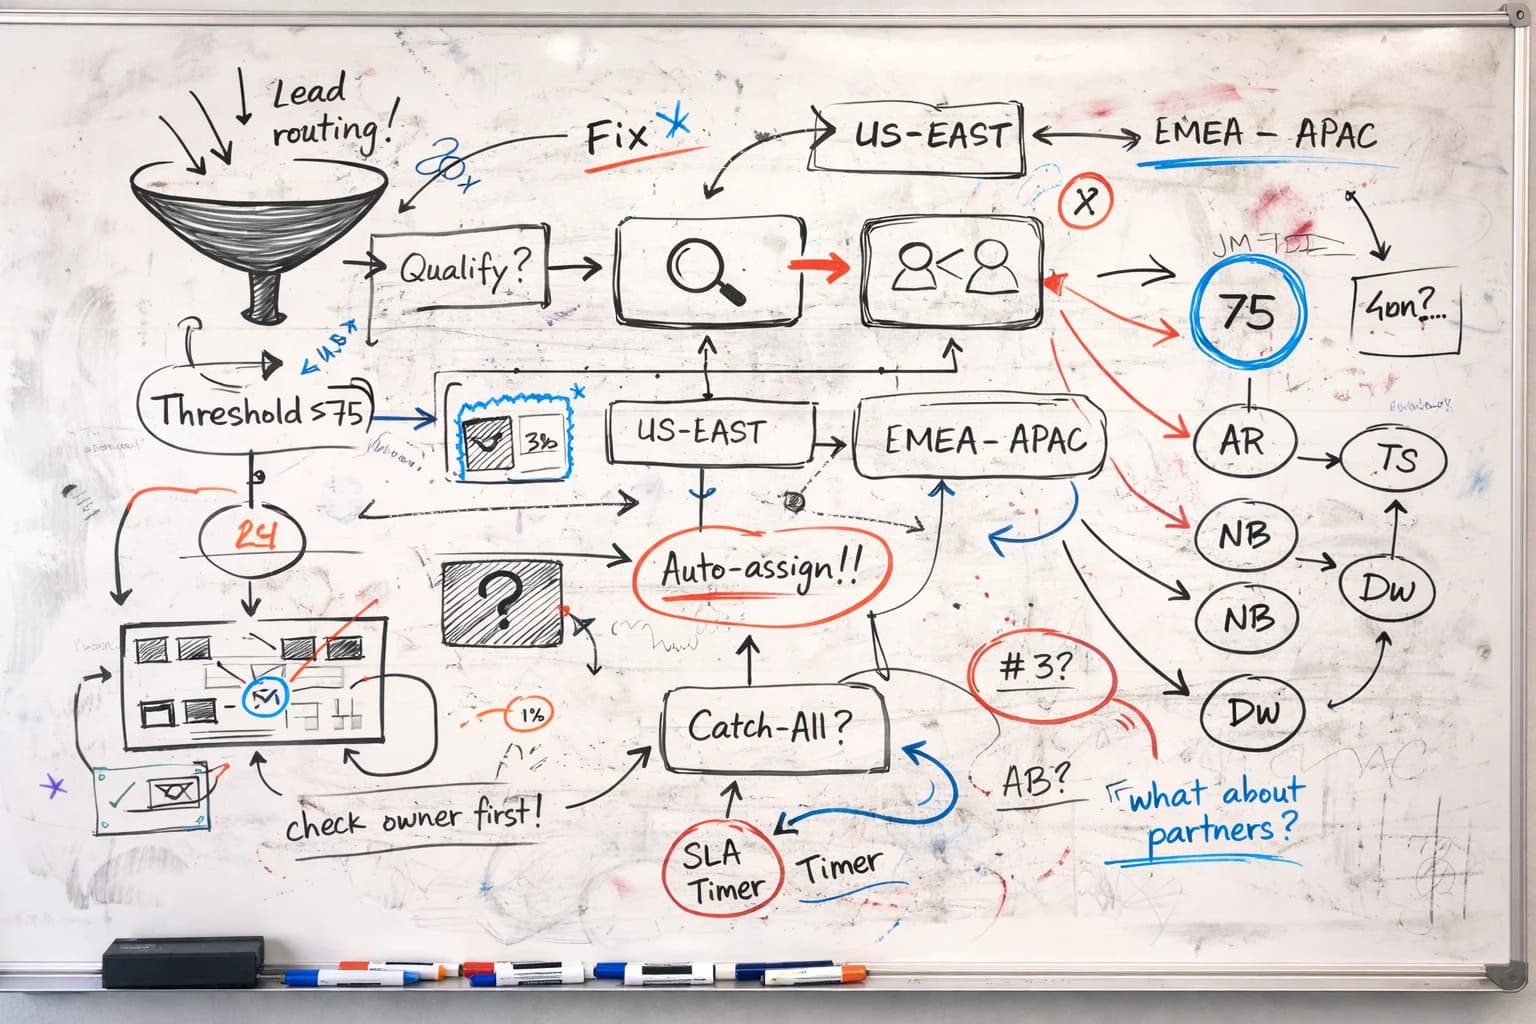 Lead
routing!
Fix *
US-EAST
EMEA - APAC
X
Qualify?
75
Threshold ≤75
3%
*
US-EAST
EMEA - APAC
AR
TS
24
NB
Auto-assign!!
?
NB
DW
# 3?
DW
1%
Catch-All?
AB?
"what about
partners?
check owner first!
SLA
Timer
Timer